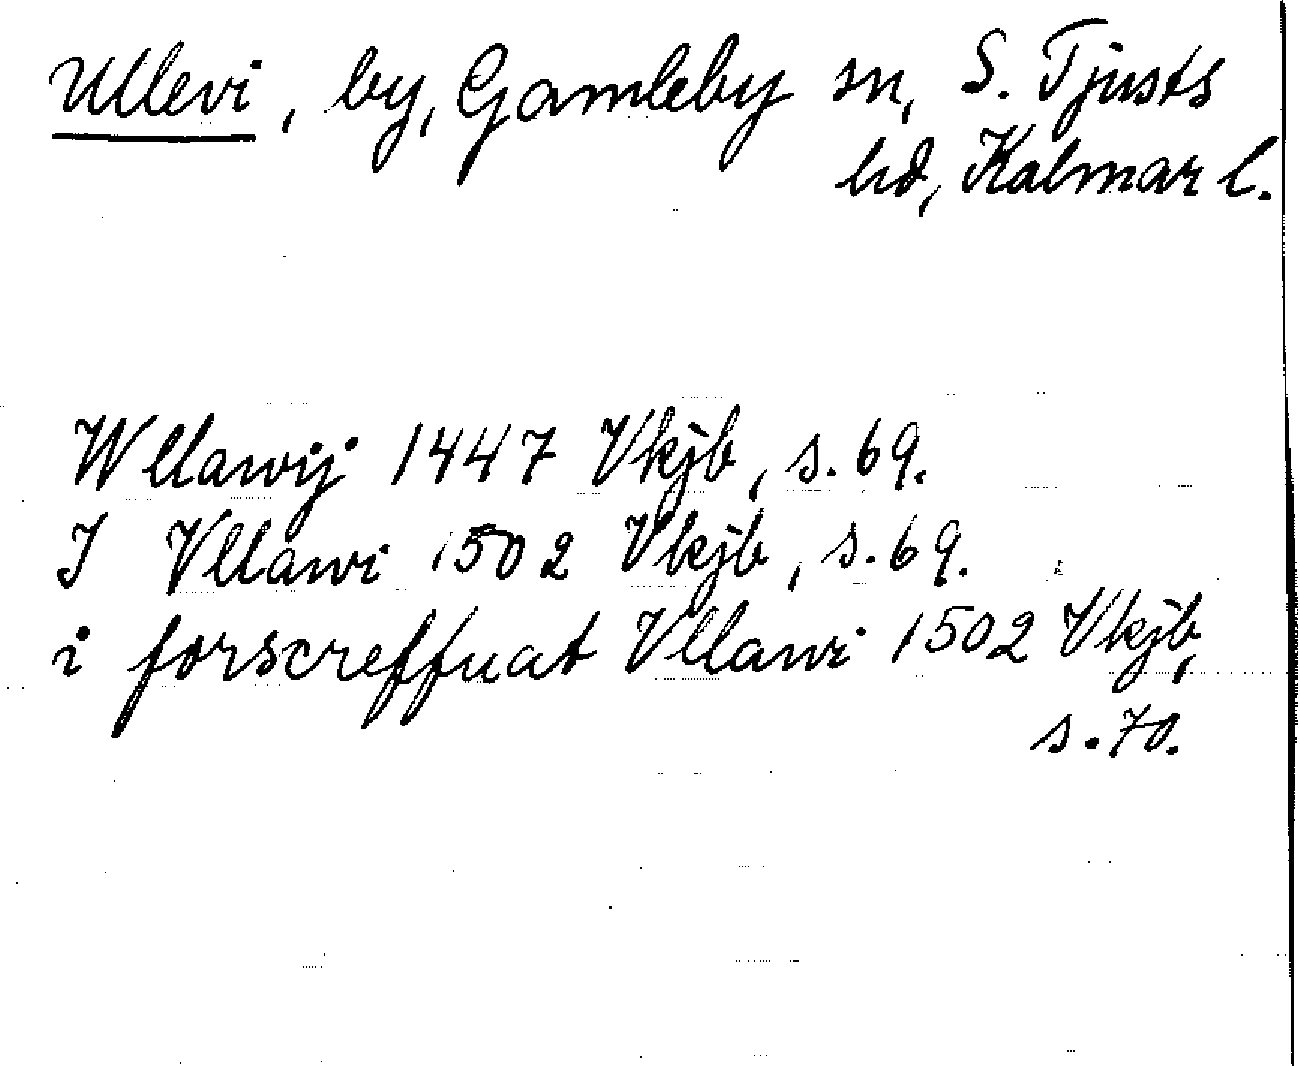 Ullevi, by, Gamleby sn, S. Tjusts
hd, Kalmar l.
Wllawij 1447 Vkjb, s. 69.
I Vllawi 1502 Vkjb, s. 69.
i forscreffuat Vllawi 1502 Vkjb,
s. 70.